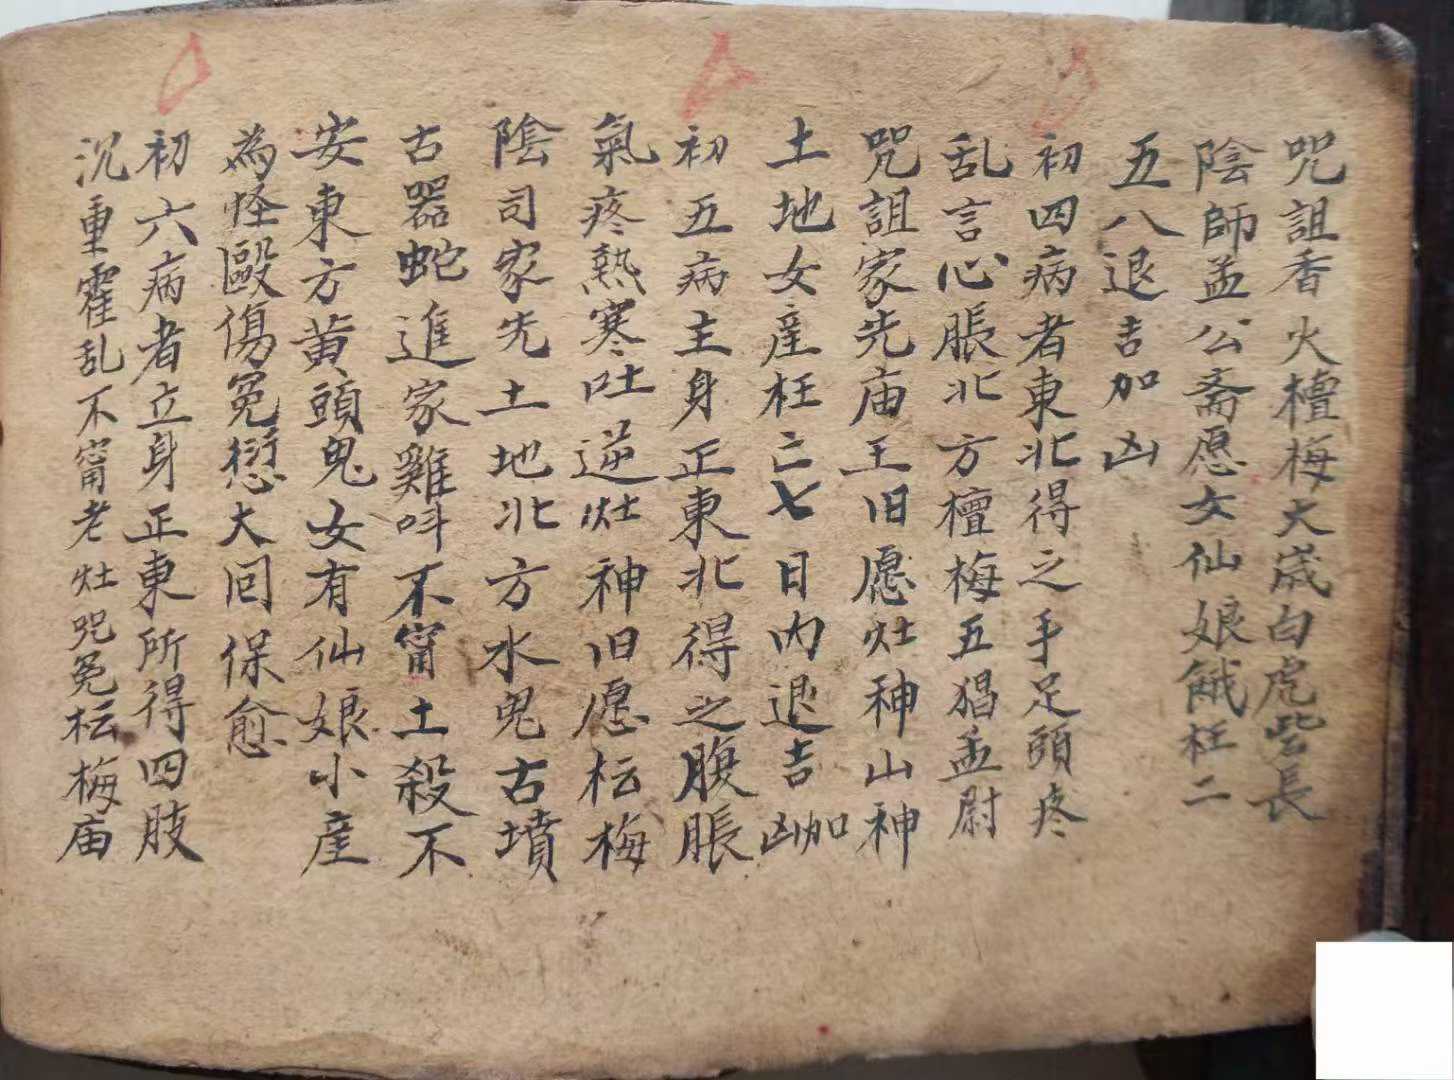 咒詛香火檀梅大歲白虎些長
陰師孟公斋愿女仙娘餓枉二
五八退吉加凶
初四病者東北得之手足頭疼
乱言心脹北方檀梅五猖孟尉
咒詛家先庙王旧愿灶神山神
土地女産枉二七日内退吉加凶
初五病主身正東北得之腹脹
氣疼熱寒吐逆灶神旧愿枟梅
陰司家先土地北方水鬼古墳
古器蛇進家雞叫不甯土殺不
安東方黄頭鬼女有仙娘小産
為怪毆傷冤愆大囘保愈
初六病者立身正東所得四肢
沉重霍乱不甯老灶咒冤枟梅庙